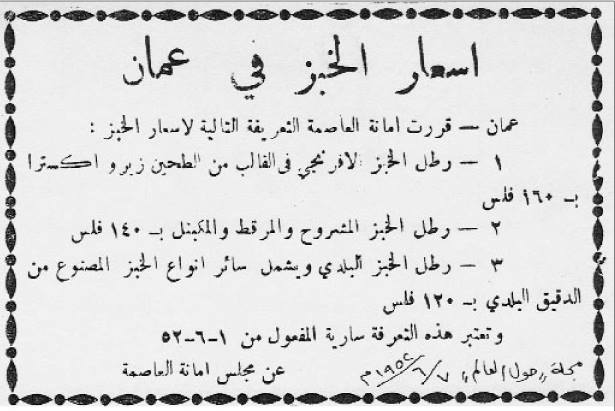 اسعار الخبز في عمان
عمان — قررت امانة العاصمة التعريفة التالية لاسعار الخبز :
١ — رطل الخبز الافرنجي في القالب من الطحين زيرو اكسترا
بـ ١٦٠ فلس
٢ — رطل الخبز المشروح والمرقط والمكبتل بـ ١٤٠ فلس
٣ — رطل الخبز البلدي ويشمل سائر انواع الخبز المصنوع من
الدقيق البلدي بـ ١٢٠ فلس
وتعتبر هذه التعرفة سارية المفعول من ١-٦-٥٢
عن مجلس امانة العاصمة
مجلة «حول العالم» ٧/٦/١٩٥٢م